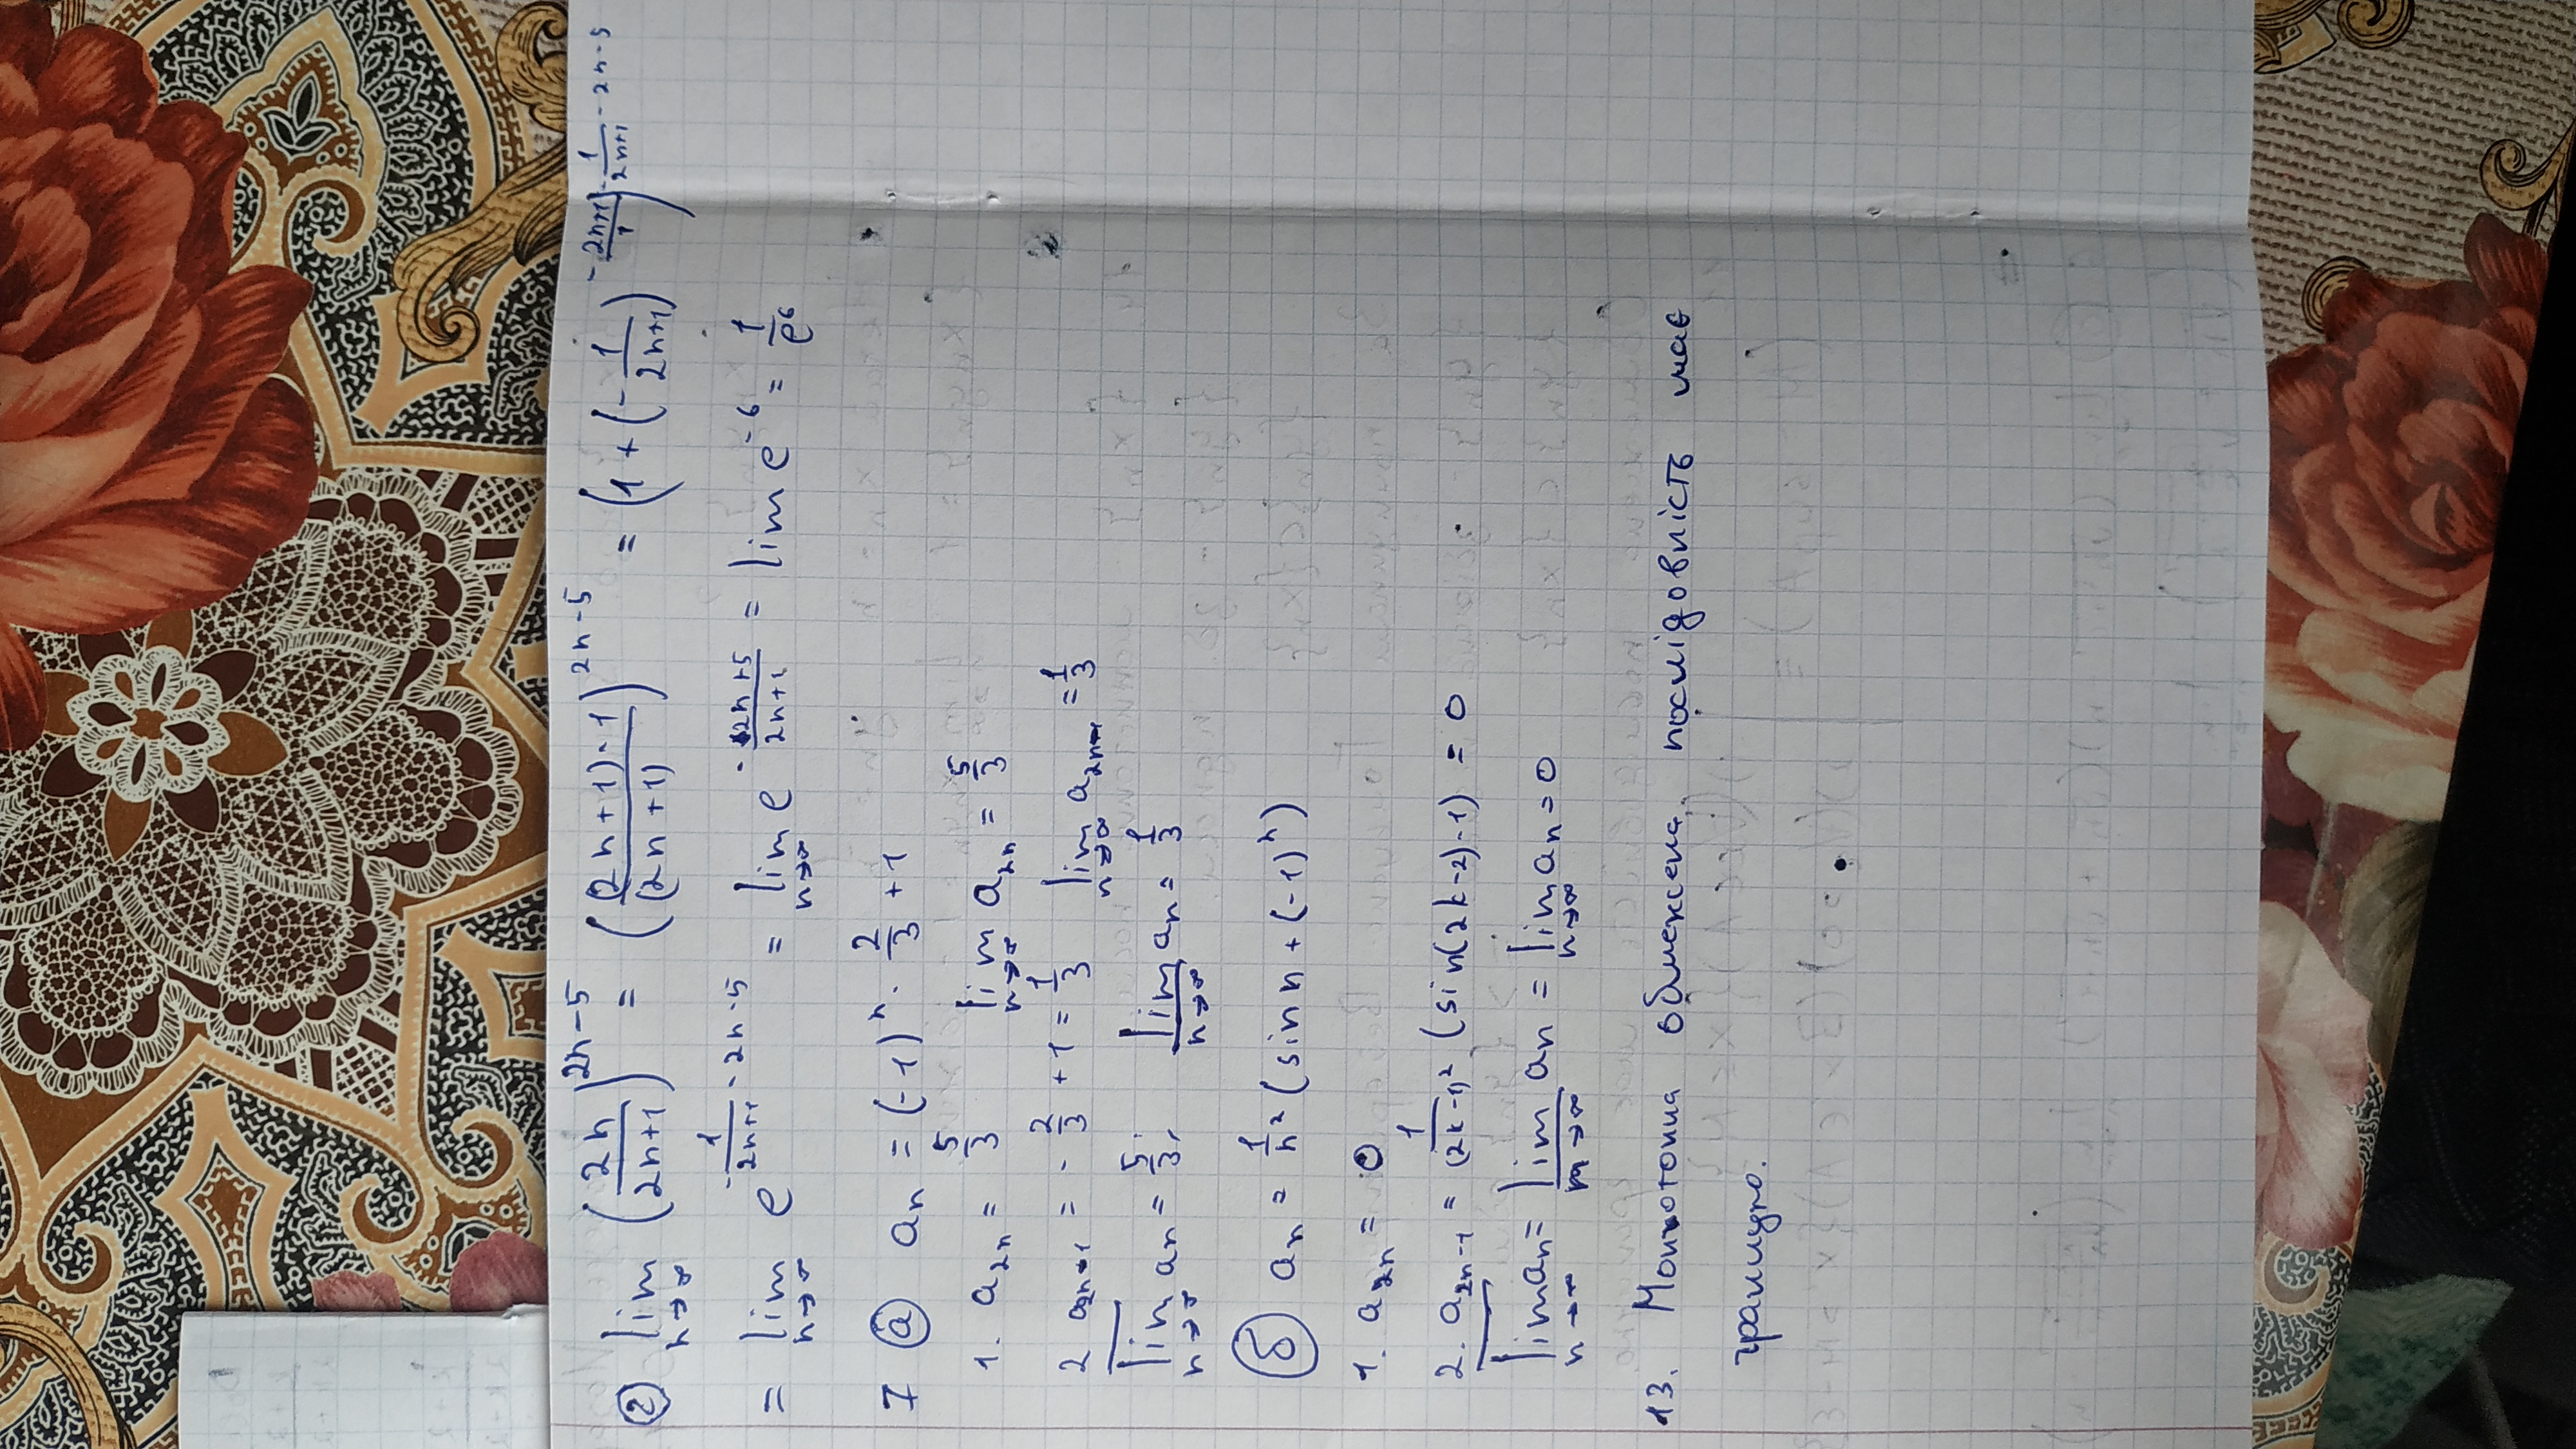 ② lim n→∞ (2n/(2n+1))^(2n-5) = ((2n+1)-1/(2n+1))^(2n-5) = (1+(-1/(2n+1))^(-(2n+1)/1))^(-1/(2n+1)·2n-5)
= lim n→∞ e^(-1/(2n+1)·2n-5) = lim n→∞ e^(-(2n+5)/(2n+1)) = lim e^(-6) = 1/e^6
7 ⓐ aₙ = (-1)^n · 2/3 + 1
1. a₂ₙ = 5/3 lim n→∞ a₂ₙ = 5/3
2 a₂ₙ₋₁ = -2/3 + 1 = 1/3 lim n→∞ a₂ₙ₋₁ = 1/3
l̅i̅m̅ n→∞ aₙ = 5/3; l̲i̲m̲ n→∞ aₙ = 1/3
б aₙ = 1/n² (sin n + (-1)^n)
1. a₂ₙ = 0
2. a₂ₙ₋₁ = 1/(2k-1)² (sin(2k-2)-1) = 0
l̅i̅m̅ n→∞ aₙ = l̲i̲m̲ n→∞ aₙ = lim n→∞ aₙ = 0
13. Монотонна обмежена послідовність має
границю.